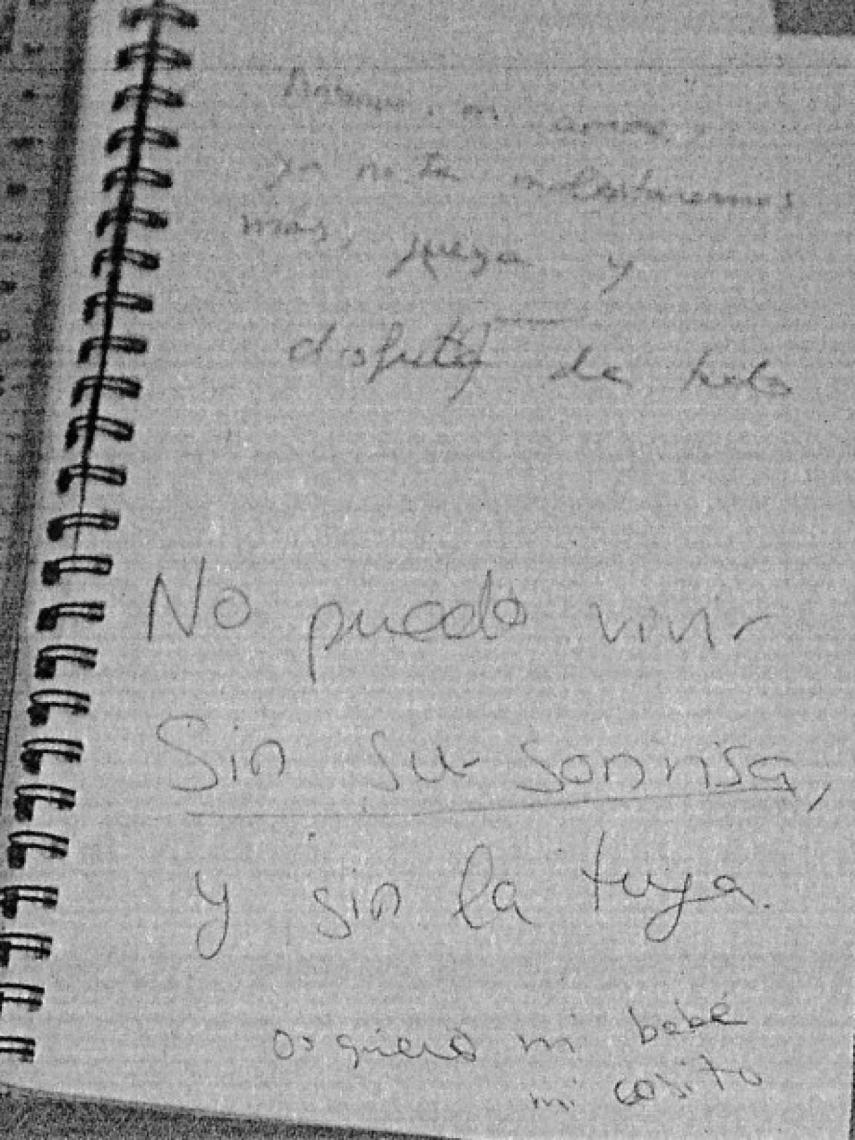 mi amor,
ya no te molestaremos
más, juega y
disfuta de todo
No puedo vivir
Sin su sonrisa,
y sin la tuya.
os quiero mi bebé
mi cosito